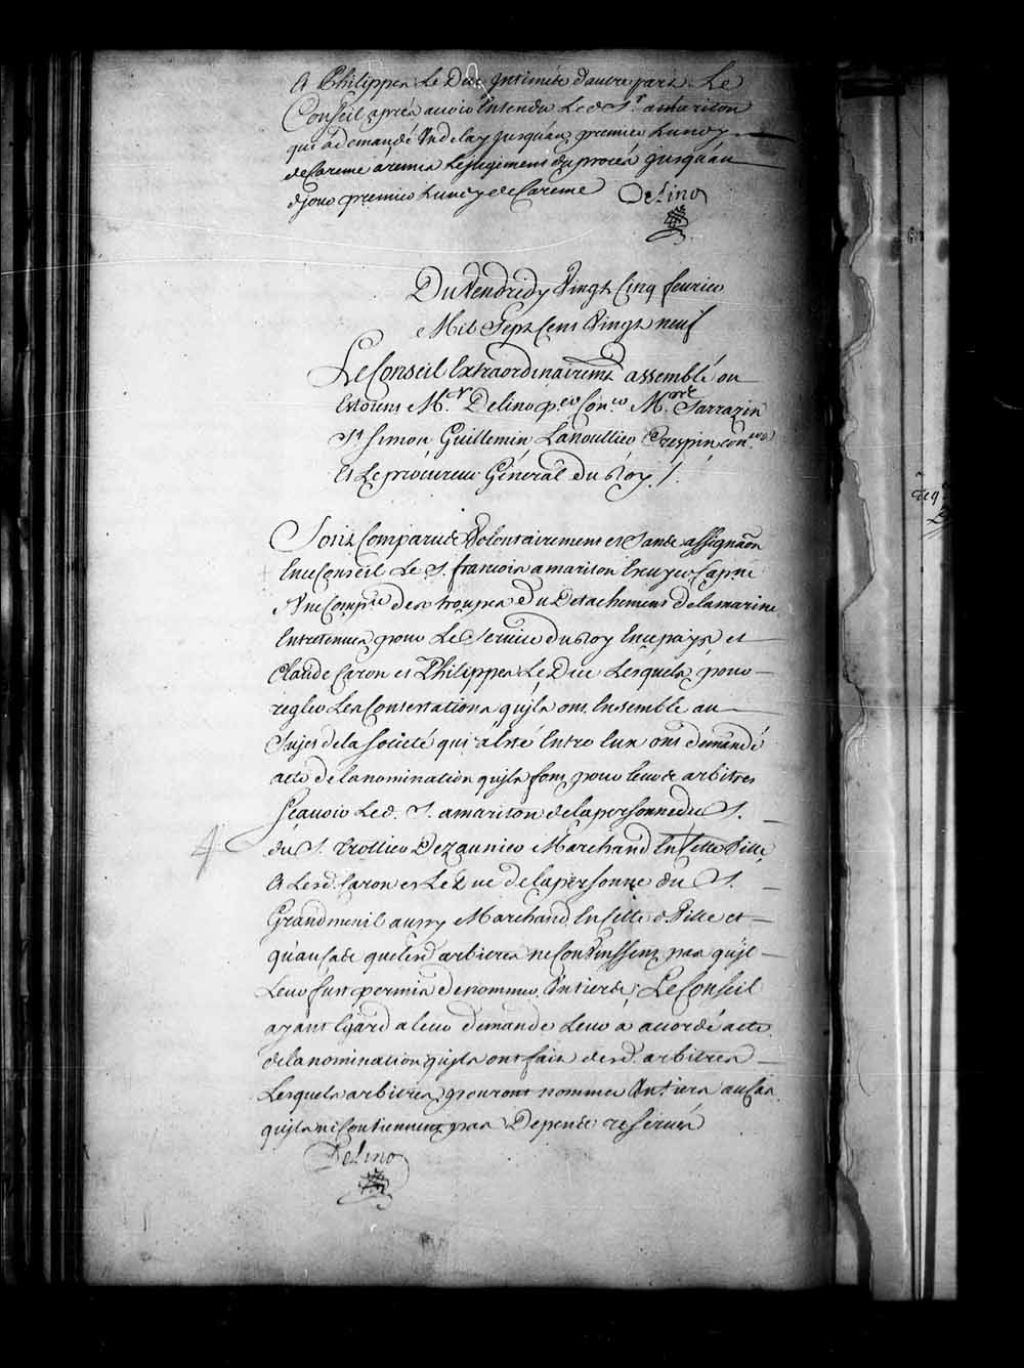 Et Philippes Le Duc Intimés dautre part. Le
Conseil aprés avoir Entendu Led. Sr. amariton
qui a demandé Un delay jusqu'au premier Lundy
de Careme a remis Le jugement du procés jusqu'au
d. jour premier Lundy de Careme Delino
Du Vendredy Vingt Cinq fevrier
Mil Sept Cens Vingt neuf
Le Conseil Extraordinairemt. assemblé ou
Estoient Mr. Delino per. Conr. Me. Sarrazin
St. Simon Guillemin Lanoullier Crespin conrs.
Et Le procureur Général du Roy ./.
Sont Comparus Volontairement et Sans assignaõn
En ce Conseil Le S. francois amariton Ecuyer Capne.
d'Une Compie. des troupes du Detachement de la marine
Entretenues pour Le Service du Roy En ce pays et
Claude Caron et Philippes Le Duc Lesquels pour
regler Les Contestations qu'ils ont Ensemble au
Sujet de la Societé qui a Esté Entre Eux ont demandé
acte de la nomination qu'ils font pour leurs arbitres
Sçavoir Led. S. amariton de la personne du S.
du S. trottier Dezauniers Marchand En Cette Ville
Et Lesd. Caron et Le Duc de la personne du S.
Grandmenil aussy Marchand En Cette d. Ville et
qu'au Cas que lesd. arbitres ne Convinssent pas qu'il
Leur fust permis de nommer Un tiers; Le Conseil
ayant Egard a leur demande Leur a accordé acte
de la nomination qu'ils ont fait desd. arbitres
Lesquels arbitres pouront nommer Un tiers au Cas
qu'ils ne Conviennent pas Depens reservés
Delino